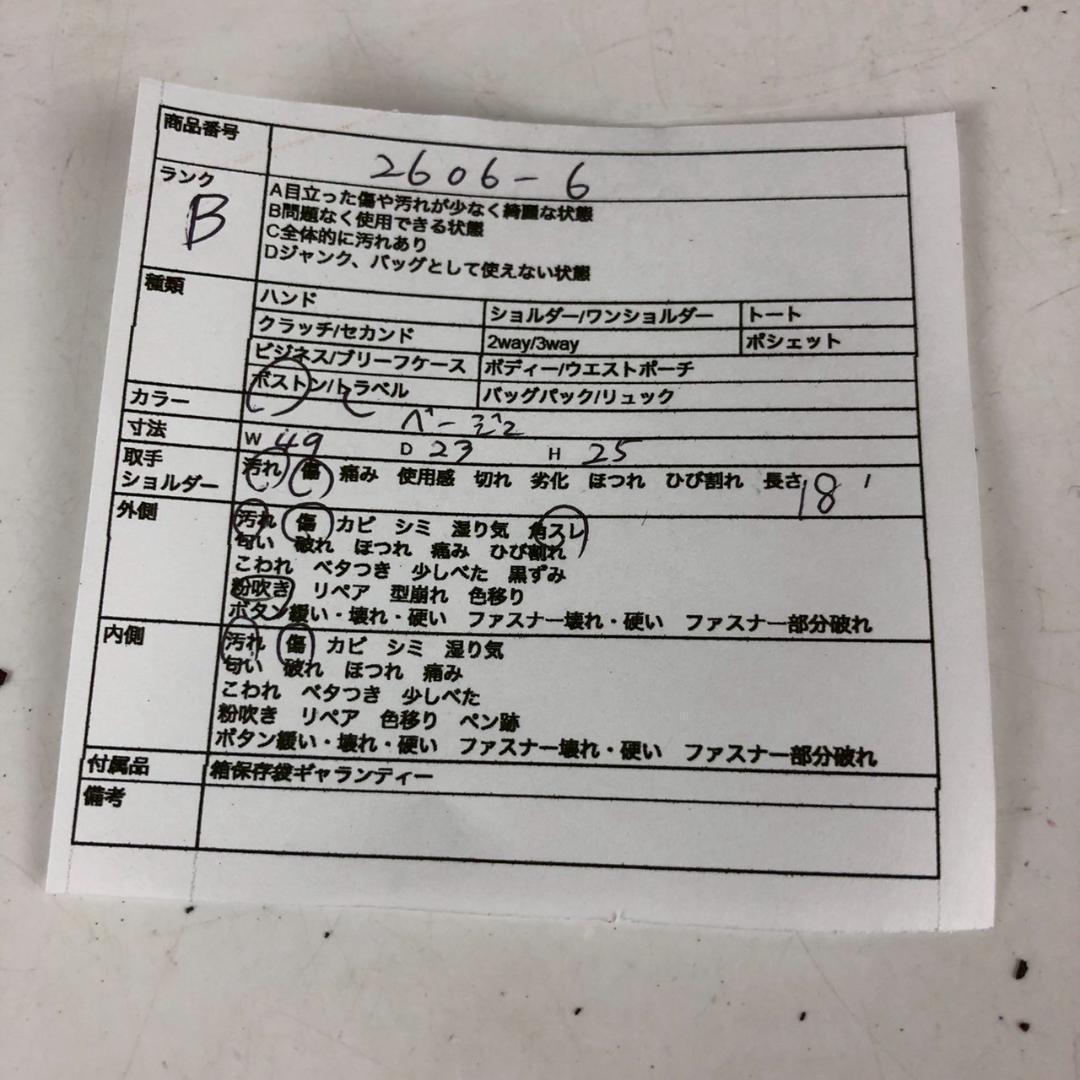 商品番号 2606-6
ランク B
A目立った傷や汚れが少なく綺麗な状態
B問題なく使用できる状態
C全体的に汚れあり
Dジャンク、バッグとして使えない状態
種類
ハンド ショルダー/ワンショルダー トート
クラッチ/セカンド 2way/3way ポシェット
ビジネス/ブリーフケース ボディー/ウエストポーチ
ボストン/トラベル バッグパック/リュック
カラー ベージュ
寸法 W 49 D 23 H 25
取手
ショルダー
汚れ 傷 痛み 使用感 切れ 劣化 ほつれ ひび割れ 長さ 18
外側
汚れ 傷 カビ シミ 湿り気 角スレ
匂い 破れ ほつれ 痛み ひび割れ
こわれ ベタつき 少しべた 黒ずみ
粉吹き リペア 型崩れ 色移り
ボタン緩い・壊れ・硬い ファスナー壊れ・硬い ファスナー部分破れ
内側
汚れ 傷 カビ シミ 湿り気
匂い 破れ ほつれ 痛み
こわれ ベタつき 少しべた
粉吹き リペア 色移り ペン跡
ボタン緩い・壊れ・硬い ファスナー壊れ・硬い ファスナー部分破れ
付属品 箱保存袋ギャランティー
備考